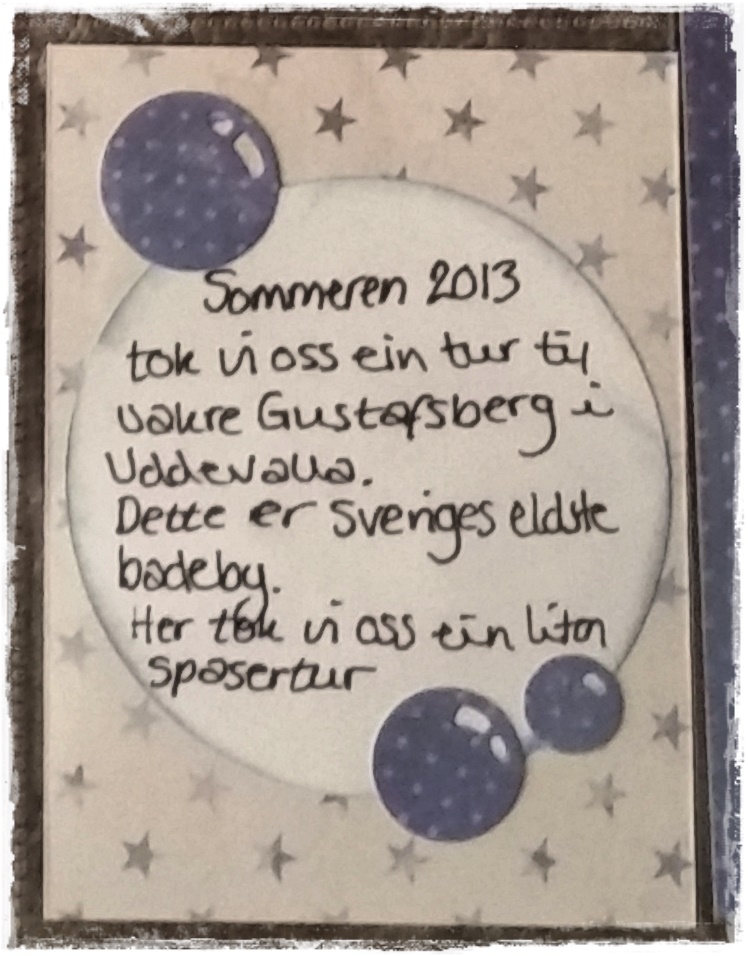 Sommeren 2013
tok vi oss ein tur til
vakre Gustafsberg i
Uddevalla.
Dette er Sveriges eldste
badeby.
Her tok vi oss ein liten
spasertur